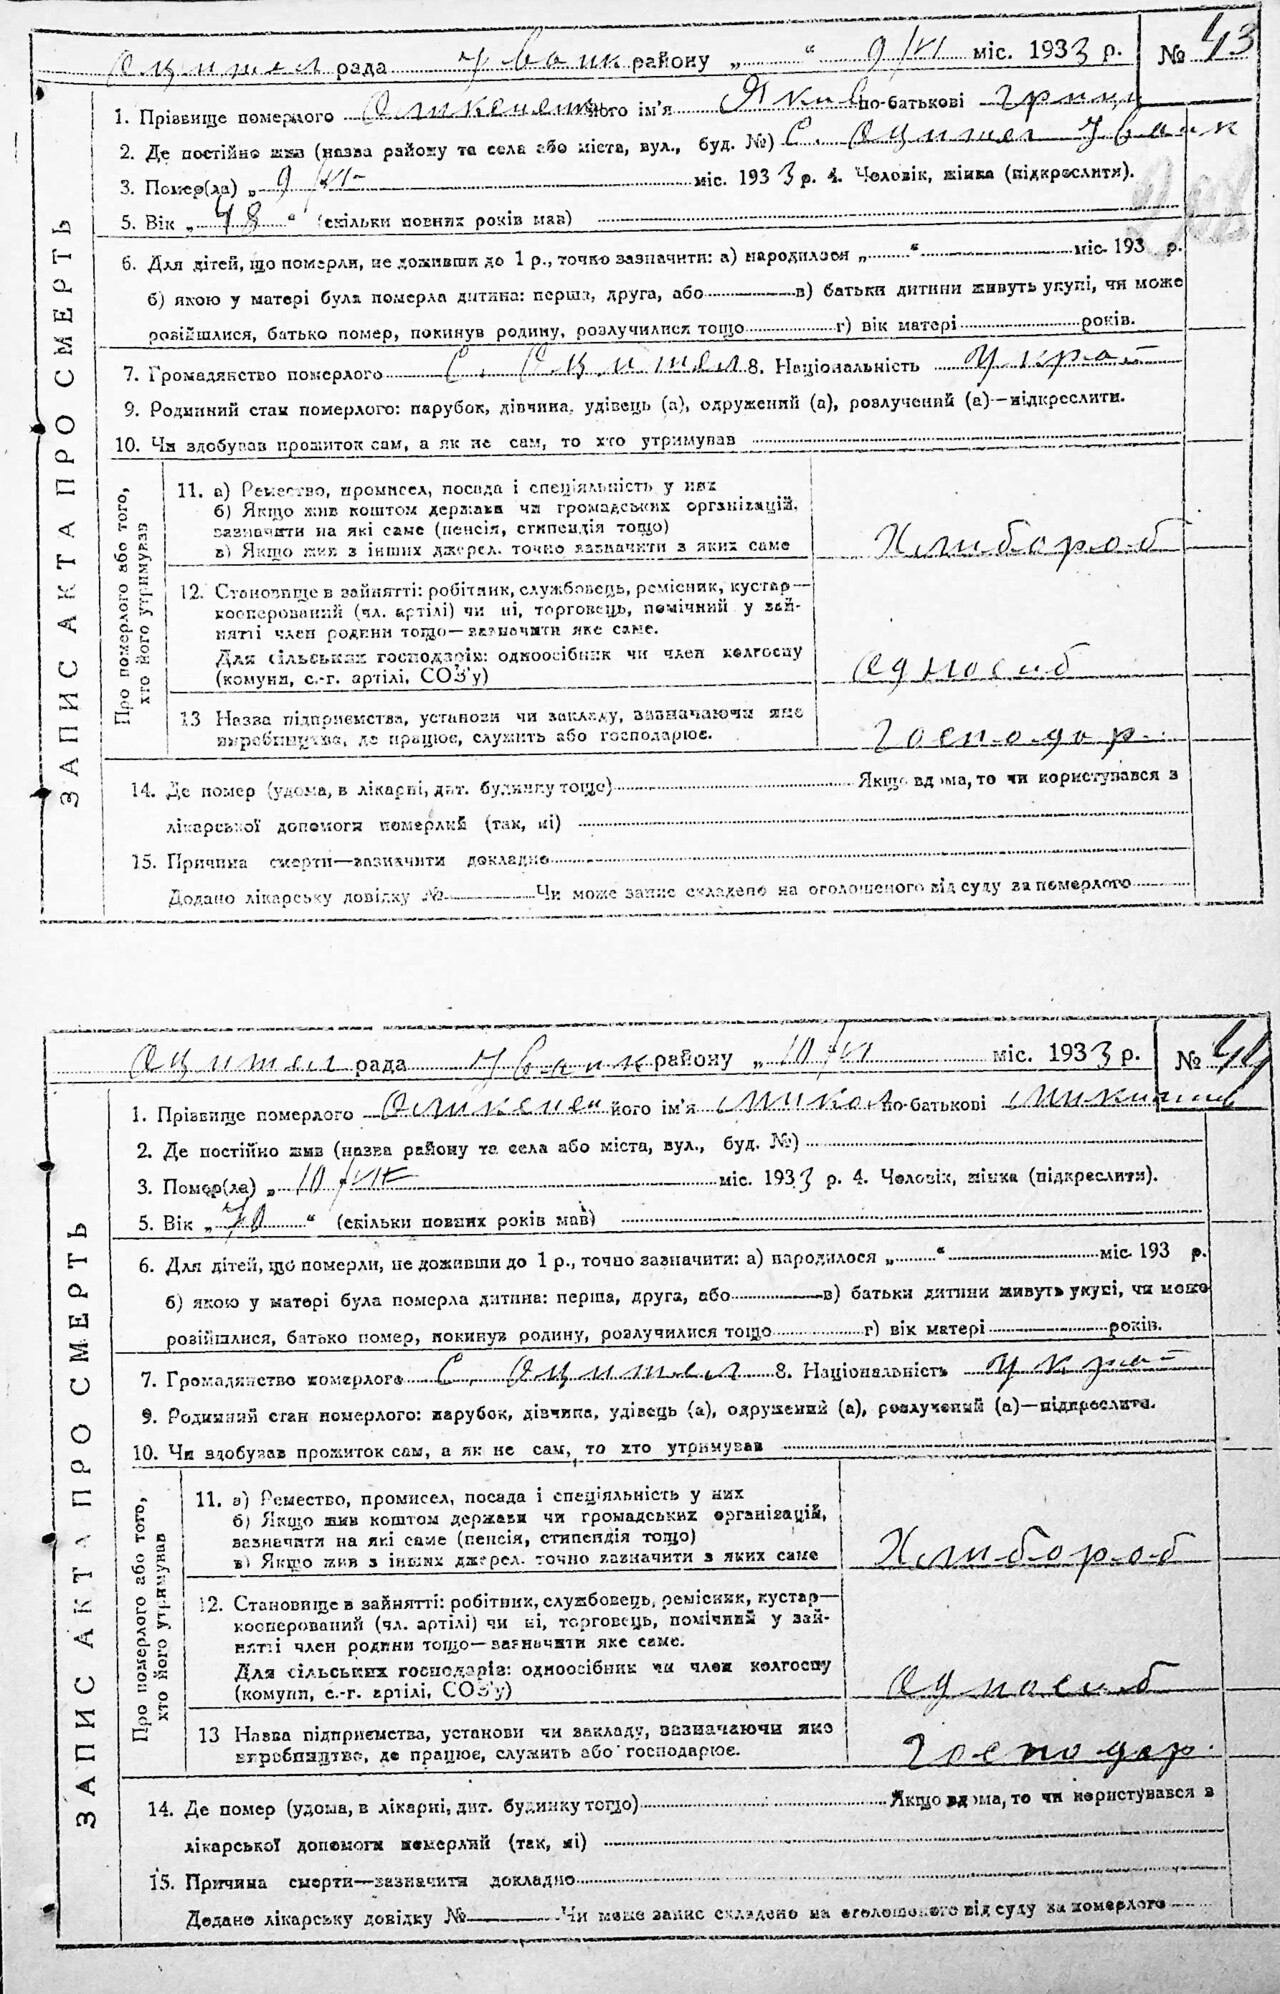 Оцител рада Уваик району „ “ 9/VI міс. 1933 р. № 43
1. Прізвище померлого його ім'я Яків по-батькові Гриц
2. Де постійно жив (назва району та села або міста, вул., буд. №) С. Оцител Уваик
3. Помер(ла) „ 9/VI- міс. 1933 р. 4. Чоловік, жінка (підкреслити).
5. Вік „ 48 “ (скільки повних років мав)
6. Для дітей, що померли, не доживши до 1 р., точно зазначити: а) народилося „ “ міс. 193 р.
б) якою у матері була померла дитина: перша, друга, або в) батьки дитини живуть укупі, чи може
розійшлися, батько помер, покинув родину, розлучилися тощо г) вік матері років.
7. Громадянство померлого С. Оцител 8. Національність Украї-
9. Родинний стан померлого: парубок, дівчина, удівець (а), одружений (а), розлучений (а)—підкреслити.
10. Чи здобував прожиток сам, а як не сам, то хто утримував
ЗАПИС АКТА ПРО СМЕРТЬ
Про померлого або того, хто його утримував
11. а) Ремество, промисел, посада і спеціяльність у них
б) Якщо жив коштом держави чи громадських організацій,
зазначити на які саме (пенсія, стипендія тощо)
в) Якщо жив з інших джерел, точно зазначити з яких саме Хлибороб
12. Становище в зайнятті: робітник, службовець, ремісник, кустар—
кооперований (чл. артілі) чи ні, торговець, помічний у зай-
нятті член родини тощо—зазначити яке саме.
Для сільських господарів: одноосібник чи член колгоспу
(комуни, с.-г. артілі, СОЗ'у) одноосиб
13 Назва підприємства, установи чи закладу, зазначаючи яке
виробництво, де працює, служить або господарює. господар.
14. Де помер (удома, в лікарні, дит. будинку тощо) Якщо вдома, то чи користувався з
лікарської допомоги померлий (так, ні)
15. Причина смерти—зазначити докладно
Додано лікарську довідку № Чи може запис складено на оголошеного від суду за померлого
Оцител рада Уваик району „ 10/VI міс. 1933 р. № 44
1. Прізвище померлого його ім'я Микол по-батькові
2. Де постійно жив (назва району та села або міста, вул., буд. №)
3. Помер(ла) „ 10/VI- міс. 1933 р. 4. Чоловік, жінка (підкреслити).
5. Вік „ 70 “ (скільки повних років мав)
6. Для дітей, що померли, не доживши до 1 р., точно зазначити: а) народилося „ “ міс. 193 р.
б) якою у матері була померла дитина: перша, друга, або в) батьки дитини живуть укупі, чи може
розійшлися, батько помер, покинув родину, розлучилися тощо г) вік матері років.
7. Громадянство померлого С. Оцител 8. Національність Украї-
9. Родинний стан померлого: парубок, дівчина, удівець (а), одружений (а), розлучений (а)—підкреслити.
10. Чи здобував прожиток сам, а як не сам, то хто утримував
ЗАПИС АКТА ПРО СМЕРТЬ
Про померлого або того, хто його утримував
11. а) Ремество, промисел, посада і спеціяльність у них
б) Якщо жив коштом держави чи громадських організацій,
зазначити на які саме (пенсія, стипендія тощо)
в) Якщо жив з інших джерел, точно зазначити з яких саме Хлибороб
12. Становище в зайнятті: робітник, службовець, ремісник, кустар—
кооперований (чл. артілі) чи ні, торговець, помічний у зай-
нятті член родини тощо—зазначити яке саме.
Для сільських господарів: одноосібник чи член колгоспу
(комуни, с.-г. артілі, СОЗ'у) одноосиб
13 Назва підприємства, установи чи закладу, зазначаючи яке
виробництво, де працює, служить або господарює. господар.
14. Де помер (удома, в лікарні, дит. будинку тощо) Якщо вдома, то чи користувався з
лікарської допомоги померлий (так, ні)
15. Причина смерти—зазначити докладно
Додано лікарську довідку № Чи може запис складено на оголошеного від суду за померлого